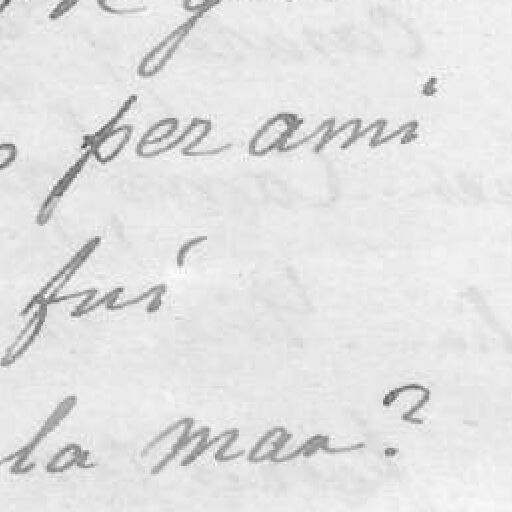 per ami
fui
la man?